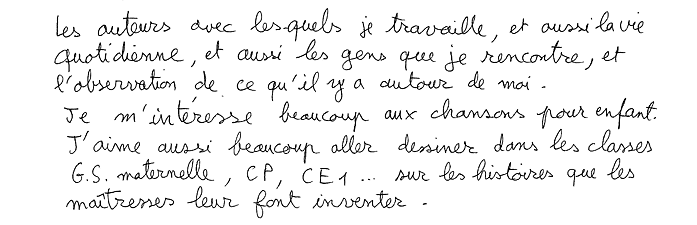 Les auteurs avec les-quels je travaille, et aussi la vie
quotidienne, et aussi les gens que je rencontre, et
l'observation de ce qu'il y a autour de moi.
Je m'intéresse beaucoup aux chansons pour enfant.
J'aime aussi beaucoup aller dessiner dans les classes
G.S. maternelle, CP, CE1... sur les histoires que les
maîtresses leur font inventer.